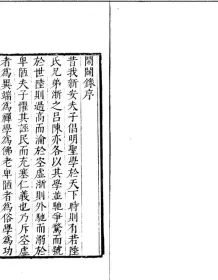 閑闢錄序
昔我新安夫子倡明聖學於天下時則有若陸
氏兄弟浙之呂陳亦各以其學並馳爭騖而號
於世陸則過高而淪於空虛浙則外馳而溺於
卑陋夫子懼其誣民而充塞仁義也乃斥空虛
者為異端為禪學為佛老卑陋者為俗學為功